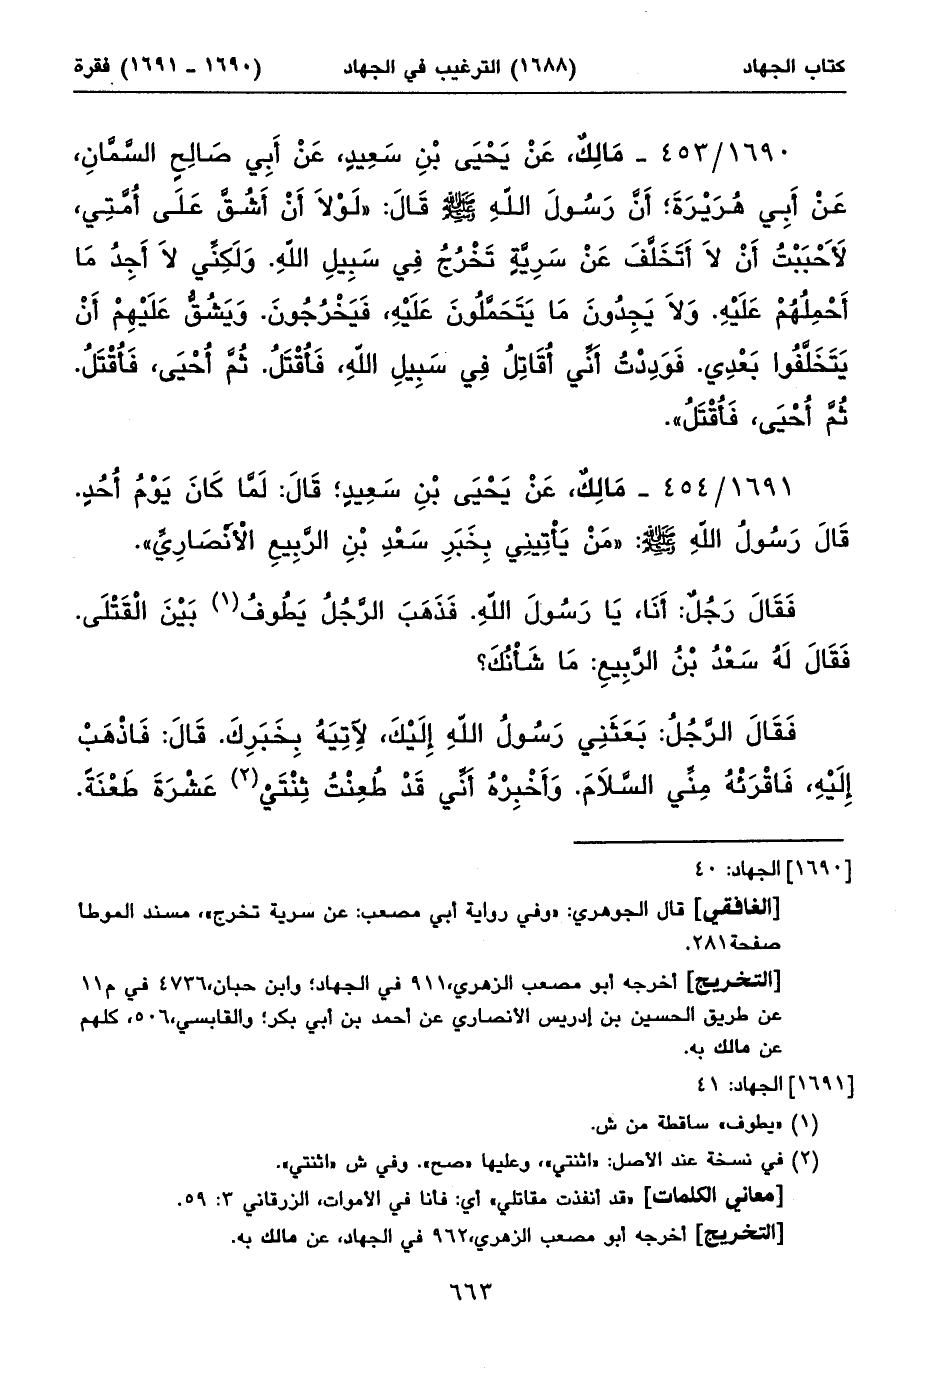 كتاب الجهاد (١٦٨٨) الترغيب في الجهاد (١٦٩٠ - ١٦٩١) فقرة
٤٥٣/١٦٩٠ - مَالِكٌ، عَنْ يَحْيَى بْنِ سَعِيدٍ، عَنْ أَبِي صَالِحٍ السَّمَّانِ،
عَنْ أَبِي هُرَيْرَةَ؛ أَنَّ رَسُولَ اللهِ ﷺ قَالَ: «لَوْلاَ أَنْ أَشُقَّ عَلَى أُمَّتِي،
لَأَحْبَبْتُ أَنْ لاَ أَتَخَلَّفَ عَنْ سَرِيَّةٍ تَخْرُجُ فِي سَبِيلِ اللهِ. وَلَكِنِّي لاَ أَجِدُ مَا
أَحْمِلُهُمْ عَلَيْهِ. وَلاَ يَجِدُونَ مَا يَتَحَمَّلُونَ عَلَيْهِ، فَيَخْرُجُونَ. وَيَشُقُّ عَلَيْهِمْ أَنْ
يَتَخَلَّفُوا بَعْدِي. فَوَدِدْتُ أَنِّي أُقَاتِلُ فِي سَبِيلِ اللهِ، فَأُقْتَلُ. ثُمَّ أُحْيَى، فَأُقْتَلُ.
ثُمَّ أُحْيَى، فَأُقْتَلُ».
٤٥٤/١٦٩١ - مَالِكٌ، عَنْ يَحْيَى بْنِ سَعِيدٍ؛ قَالَ: لَمَّا كَانَ يَوْمُ أُحُدٍ.
قَالَ رَسُولُ اللهِ ﷺ: «مَنْ يَأْتِينِي بِخَبَرِ سَعْدِ بْنِ الرَّبِيعِ الْأَنْصَارِيِّ».
فَقَالَ رَجُلٌ: أَنَا، يَا رَسُولَ اللهِ. فَذَهَبَ الرَّجُلُ يَطُوفُ(١) بَيْنَ الْقَتْلَى.
فَقَالَ لَهُ سَعْدُ بْنُ الرَّبِيعِ: مَا شَأْنُكَ؟
فَقَالَ الرَّجُلُ: بَعَثَنِي رَسُولُ اللهِ إِلَيْكَ، لِآتِيَهُ بِخَبَرِكَ. قَالَ: فَاذْهَبْ
إِلَيْهِ، فَاقْرَئْهُ مِنِّي السَّلاَمَ. وَأَخْبِرْهُ أَنِّي قَدْ طُعِنْتُ ثِنْتَيْ(٢) عَشْرَةَ طَعْنَةً.
[١٦٩٠] الجهاد: ٤٠
[الغافقي] قال الجوهري: «وفي رواية أبي مصعب: عن سرية تخرج»، مسند الموطأ
صفحة٢٨١.
[التخريج] أخرجه أبو مصعب الزهري،٩١١ في الجهاد؛ وابن حبان،٤٧٣٦ في م١١
عن طريق الحسين بن إدريس الأنصاري عن أحمد بن أبي بكر؛ والقابسي،٥٠٦، كلهم
عن مالك به.
[١٦٩١] الجهاد: ٤١
(١) «يطوف» ساقطة من ش.
(٢) في نسخة عند الأصل: «اثنتي»، وعليها «صح». وفي ش «اثنتي».
[معاني الكلمات] «قد أنفذت مقاتلي» أي: فأنا في الأموات، الزرقاني ٣: ٥٩.
[التخريج] أخرجه أبو مصعب الزهري،٩٦٢ في الجهاد، عن مالك به.
٦٦٣